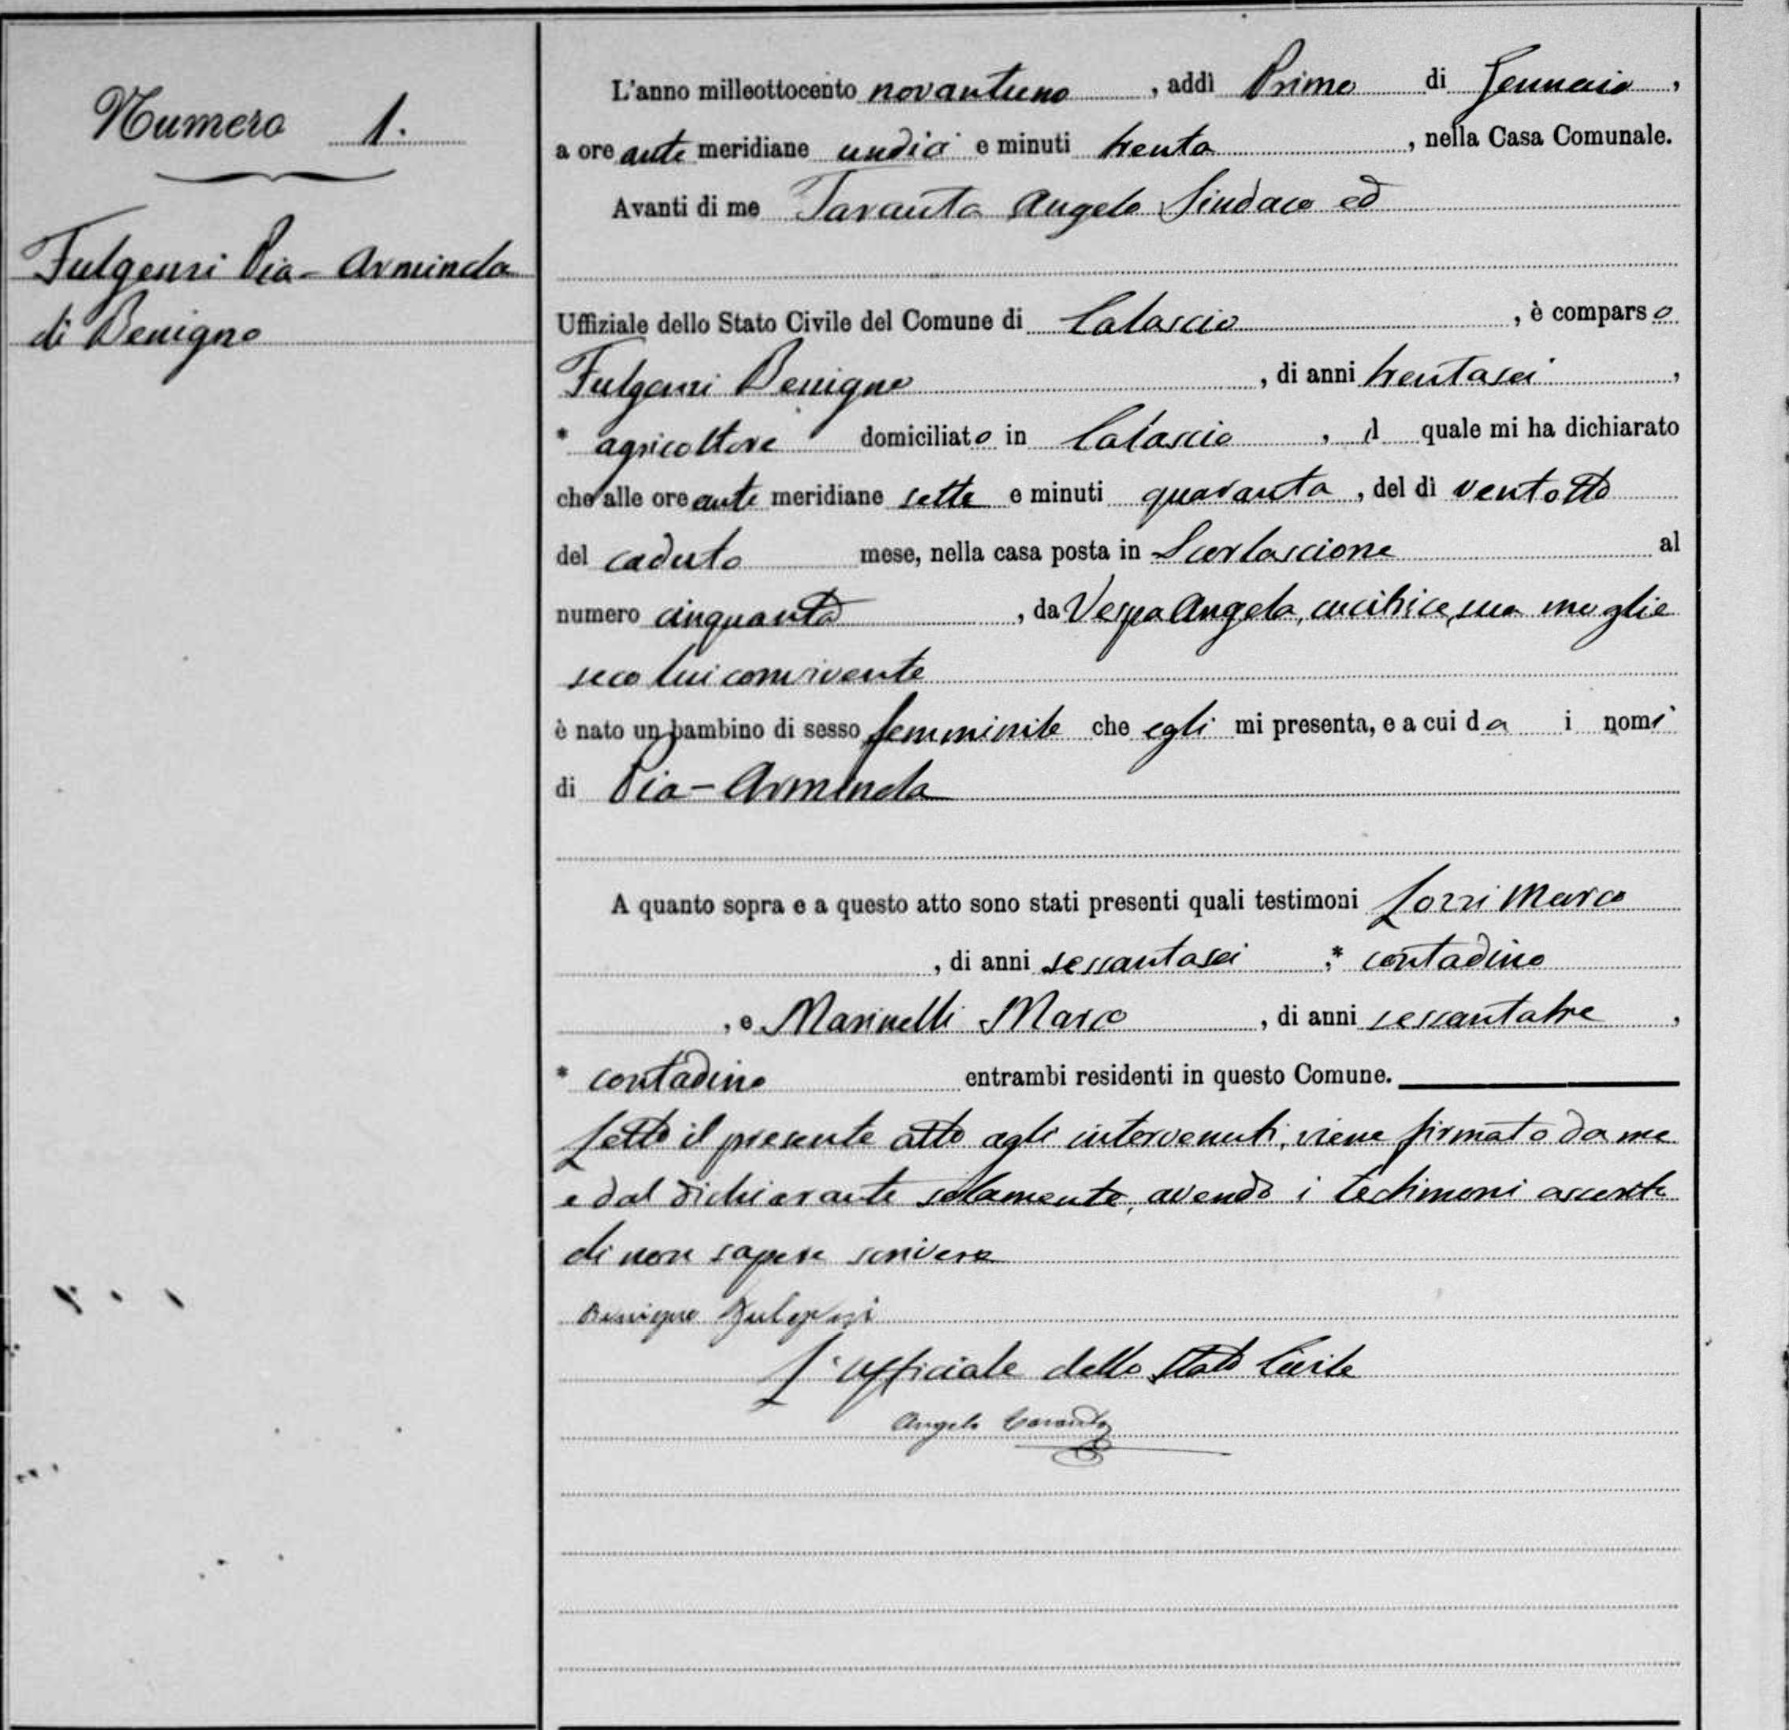 Numero 1.
Fulgenzi Pia-Arminda
di Benigno
L'anno milleottocento novantuno, addì Primo di Gennaio,
a ore ante meridiane undici e minuti trenta, nella Casa Comunale.
Avanti di me Taranta Angelo Sindaco ed
Uffiziale dello Stato Civile del Comune di Calascio, è comparso
Fulgenzi Benigno, di anni trentasei,
* agricoltore domiciliato in Calascio, il quale mi ha dichiarato
che alle ore ante meridiane sette e minuti quaranta, del dì ventotto
del caduto mese, nella casa posta in Scarlascione al
numero cinquanta, da Vespa Angela, cucitrice, sua moglie
seco lui convivente
è nato un bambino di sesso femminile che egli mi presenta, e a cui da i nomi
di Pia-Arminda
A quanto sopra e a questo atto sono stati presenti quali testimoni Lozzi Marco
, di anni sessantasei, * contadino
, e Marinelli Marco, di anni sessantatre,
* contadino entrambi residenti in questo Comune.
Letto il presente atto agli intervenuti, viene firmato da me
e dal dichiarante solamente, avendo i testimoni asserito
di non sapere scrivere
Benigno Fulgenzi
L'Ufficiale dello Stato Civile
Angelo Taranta